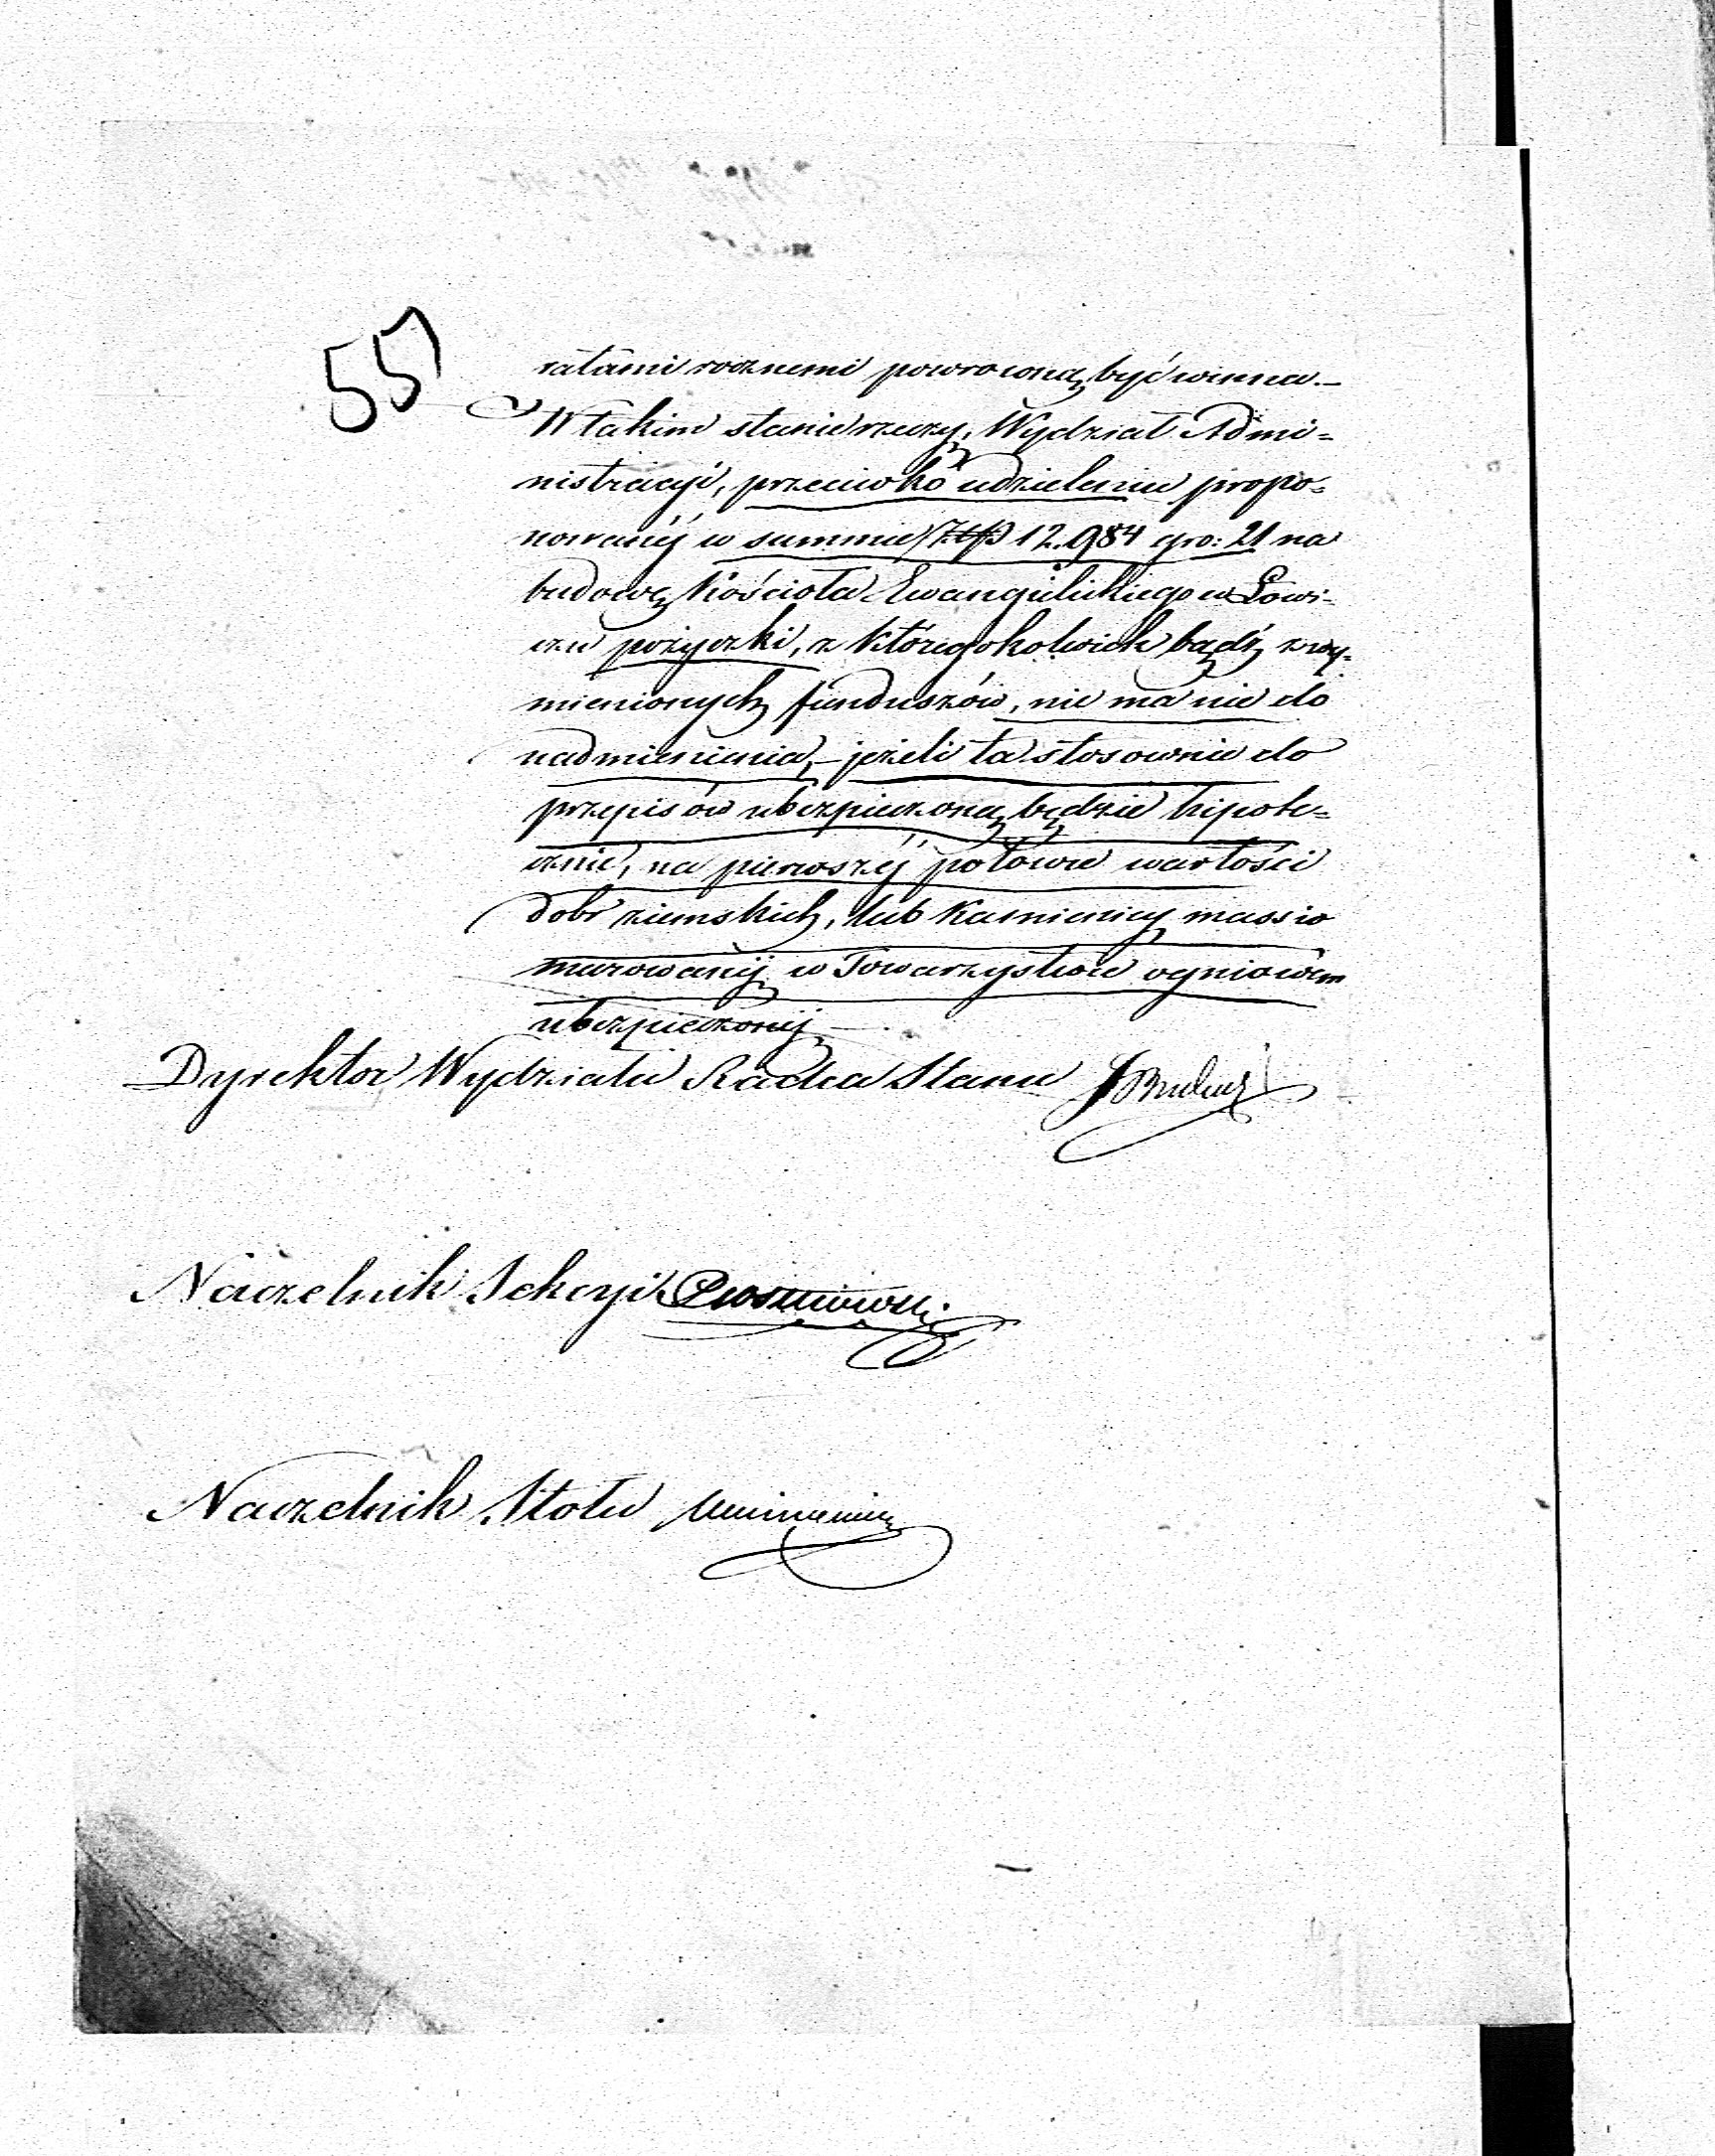 55
ratami rocznemi powroconą być winna.—
W takim stanie rzeczy, Wydział Admi=
nistracyi, przeciwko udzieleniu propo=
nowanéj w summie Złp 12.984 gro: 21 na
budowę Kościoła Ewangielickiego w Łowi=
czu pożyczki, z któregokolwiek bądź z wy=
mienionych funduszów, nie ma nic do
nadmienienia,— jeżeli ta stosownie do
przepisów ubezpieczoną będzie hipote=
cznie, na pierwszéj połowie wartości
dobr ziemskich, lub Kamienicy massiv
murowanéj w Towarzystwie ogniowém
ubezpieczonéj.—
Dyrektor Wydziału Radca Stanu
Naczelnik Sekcyi
Naczelnik Stołu